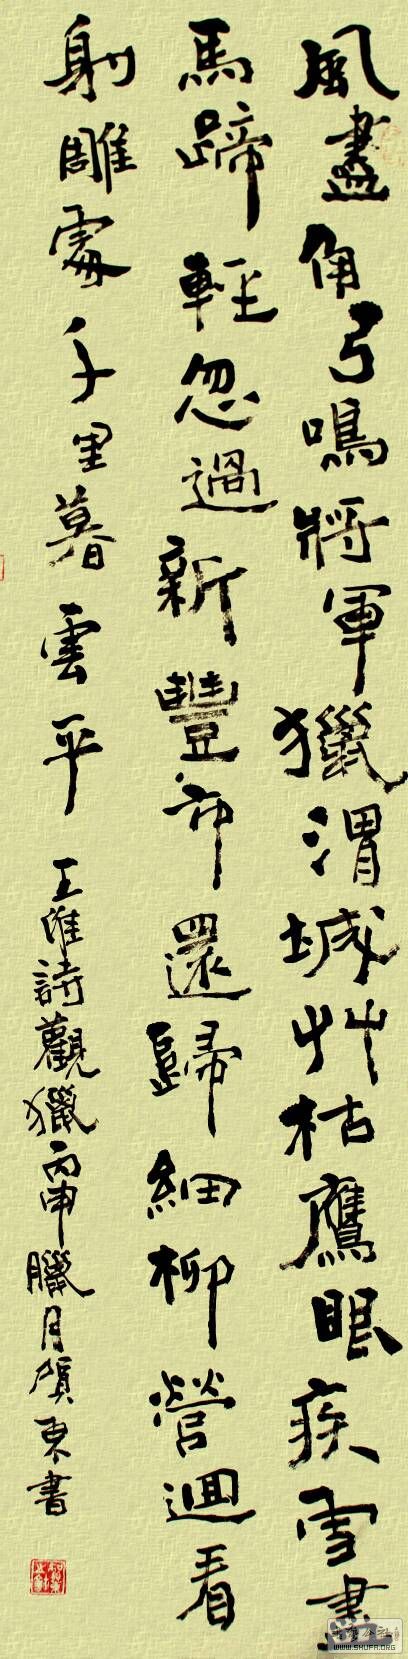 風盡角弓鳴將軍獵渭城艸枯鷹眼疾雪盡
馬蹄輕忽過新豐市還歸細柳營迴看
射雕處千里暮雲平
王維詩觀獵丙申臘月賀東書
WWW.SHUFA.ORG